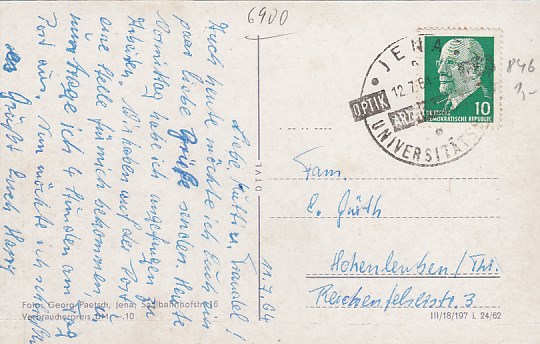 6900
11.7.64
Liebe Mutti u. Traudel!
Auch heute möchte ich Euch ein
paar liebe Grüße senden. Heute
Vormittag habe ich angefangen zu
arbeiten. Wir haben auf der Post
eine Stelle für mich bekommen.
nun trage ich 4 Stunden am Tag
Post aus. Nun möchte ich
Es Grüßt Euch
JENA
12.7.64
OPTIK
UNIVERSITÄT
DEUTSCHE
DEMOKRATISCHE REPUBLIK
10
846
1,-
Fam.
E. Gürth
Hohenleuben / Thr.
Reichenfelserstr. 3
Foto: Georg Paetsch, Jena, Saalbahnhofstr. 16
Verbraucherpreis DM -,10
III/18/197 L 24/62